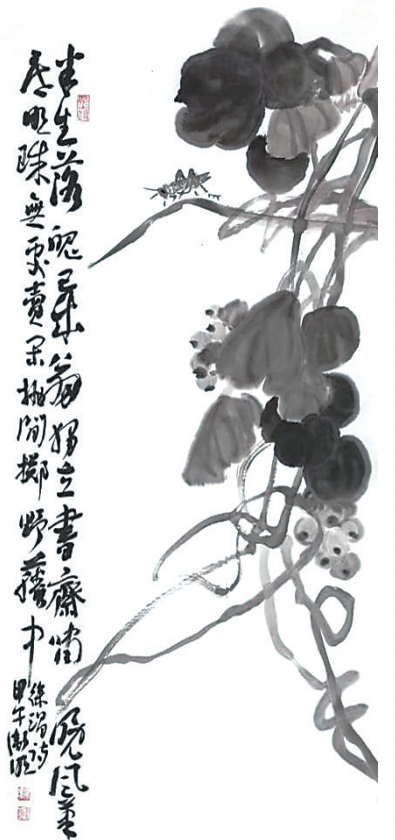 半生落魄已成翁獨立書齋嘯晚風筆
底明珠無處賣閑拋閒擲野藤中
徐渭詩
甲午